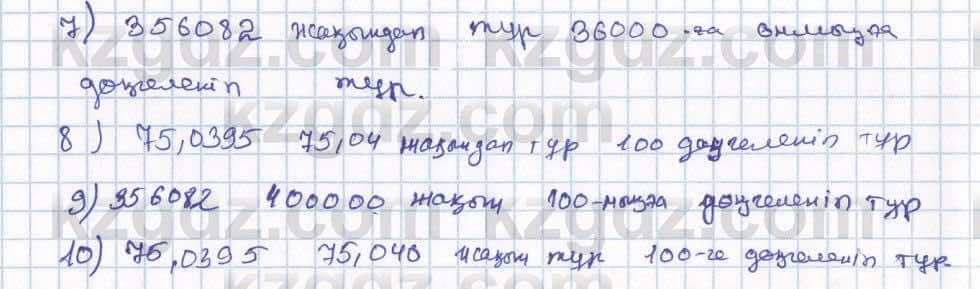 7) 356082 жақындап тұр 36000-ға онмыңға
дөңгеленіп тұр.
8) 75,0395 75,04 жақындап тұр 100 дөңгеленіп тұр
9) 356082 400000 жақын 100-мыңға дөңгеленіп тұр
10) 75,0395 75,040 жақын тұр 100-ге дөңгеленіп тұр.